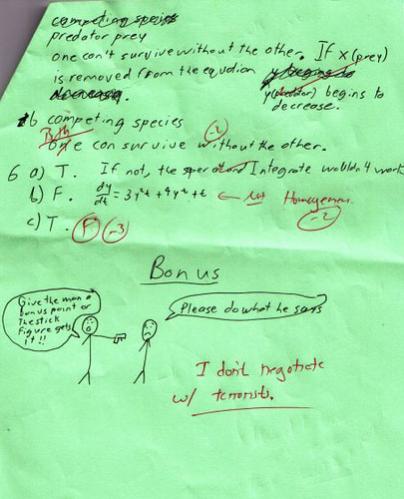 competing species
predator prey
one can't survive without the other. If x (prey)
is removed from the equation y begins to
decrease. y(predator) begins to
decrease.
b competing species
-2
Both
One can survive without the other.
6 a) T. If not, the Integrate wouldn't work
b) F. dy/dt = 3y²t + 9y²t + t ← not Homogeneous
-2
c) T. F -3
Bonus
Give the man a
bonus point or
The stick
Figure gets
it!!
Please do what he says
I don't negotiate
w/ terrorists.